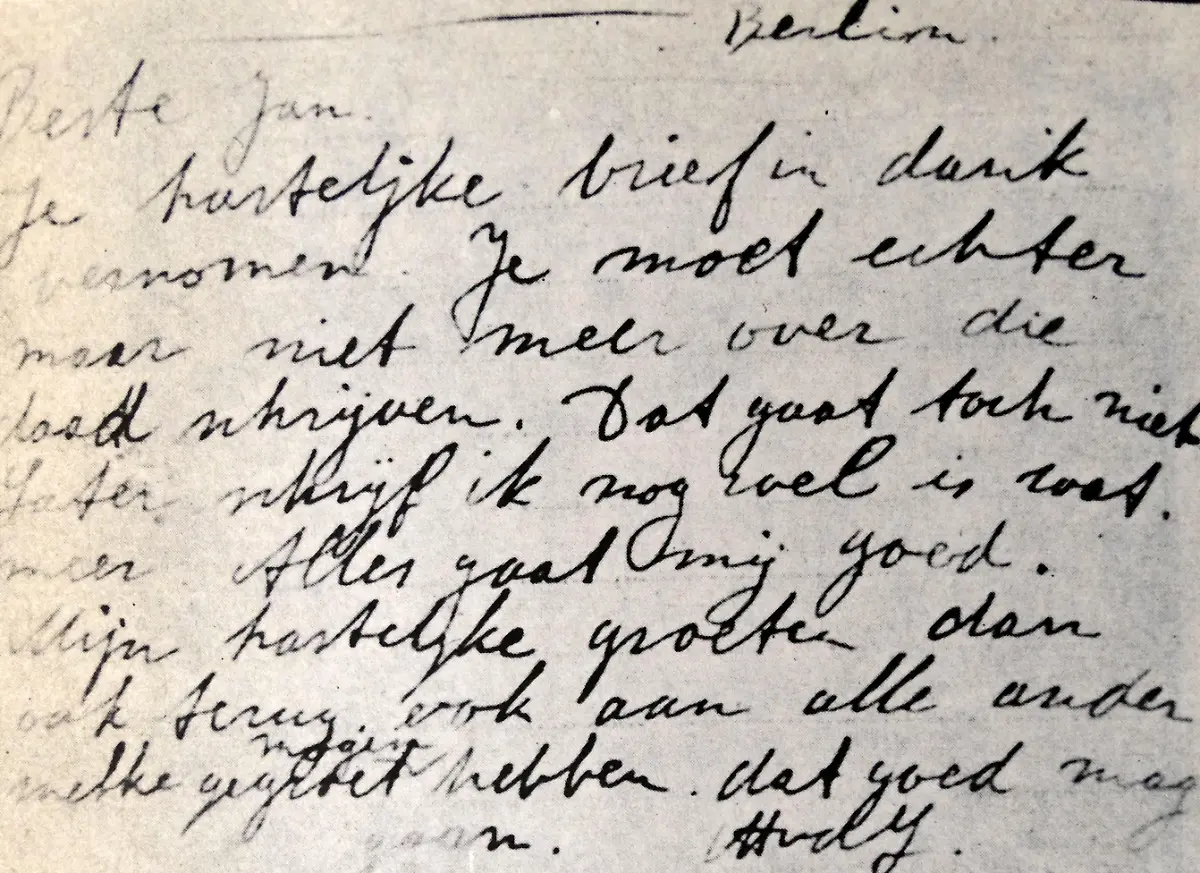 Berlin.
Beste Jan.
Je hartelijke brief in dank
vernomen. Je moet echter
maar niet meer over die
daad schrijven. Dat gaat toch niet
Later schrijf ik nog wel is wat.
meer Alles gaat mij goed.
Mijn hartelijke groeten dan
ook terug. ook aan alle ander
mogen
welke gegroet hebben. dat goed mag
gaan. MvdL.